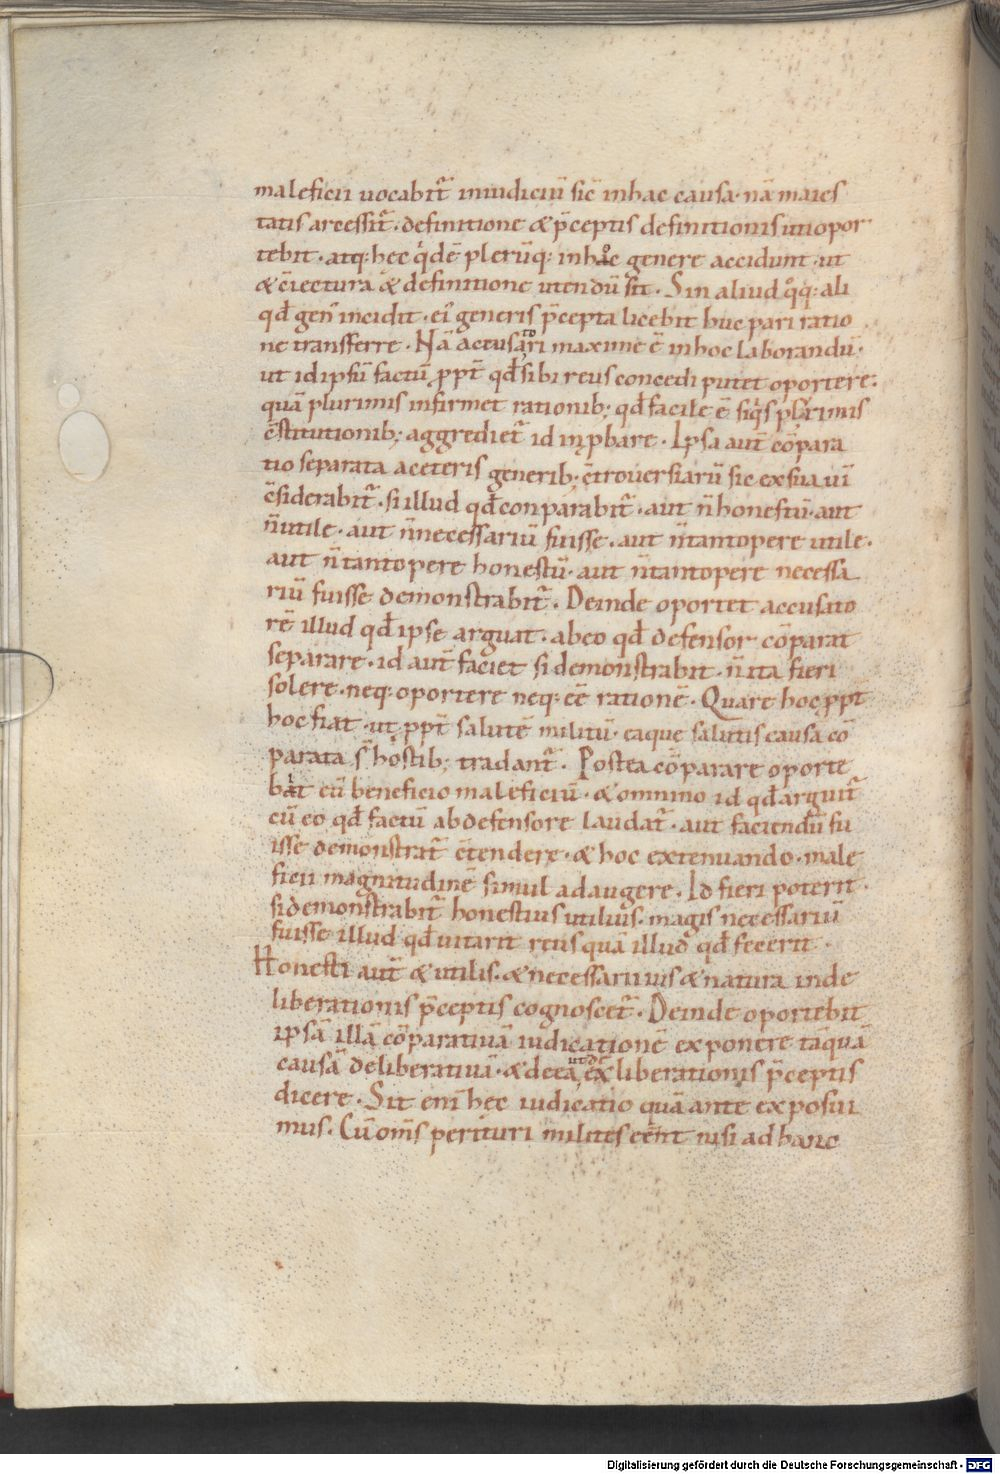 maleficii uocabit̃ iniudiciũ sic̃ inhac causa· nã maies
tatis arcessit̃· definitione & p̃ceptis definitionis uti opor
tebit· atq: hec q̇dẽ plerũq: inhoc genere accidunt· ut
& c̃iectura & definitione utendũ sit· Sin aliud q̊q: ali
qđ gen̄ incidit· ei᾽ generis p̃cepta licebit huc pari ratio
ne transferre· Nã accusatori maxime ẽ inhoc laborandũ·
ut id ipsũ factũ ꝓpt̃ qđ sibi reus concedi putet oportere:
quã plurimis infirmet rationib; qđ facile ẽ siq̇s plurimis
c̃stitutionib; aggrediet̃ id inꝓbare· Ipsa aut̃ cõpara
tio separata aceteris generib; c̃trouersiarũ sic exsua ui
c̃siderabit̃· si illud qđ conparabit̃· aut ñ honestũ· aut
ñ utile· aut ñ necessariũ fuisse· aut ñ tantopere utile·
aut ñ tantopere honestũ· aut ñ tantopere necessa
riũ fuisse demonstrabit̃· Deinde oportet accusato
rẽ illud qđ ipse arguat· abeo qđ defensor cõparat
separare· id aut̃ faciet si demonstrabit· ñ ita fieri
solere· neq: oportere neq: eẽ rationẽ· Quare hoc ꝓpt̃
hoc fiat· ut ꝓpt̃ salutẽ militũ· eaque salutis causa cõ
parata s̃ hostib; tradant̃· Postea cõparare oporte
bit cũ beneficio maleficiũ· & omnino id qđ arguit̃
cũ eo qđ factũ ab defensore laudat̃· aut faciendũ fu
isse demonstrat̃ c̃tendere· & hoc extenuando· male
ficii magnitudinẽ simul adaugere· Id fieri poterit·
si demonstrabit̃ honestius utilius· magis necessariũ
fuisse illud qđ uitarit reus quã illud qđ fecerit·
Honesti aut̃ & utilis· & necessarii uis & natura inde
liberationis p̃ceptis cognoscet̃· Deinde oportebit
ipsã illã cõparatiuã iudicationẽ exponere tãquã
causã deliberatiuã· & deea ut d ex liberationis p̃ceptis
dicere· Sit enĩ hec iudicatio quã ante exposui
mus· Cũ oms̃ perituri milites eẽnt nisi ad hanc
Digitalisierung gefördert durch die Deutsche Forschungsgemeinschaft - DFG